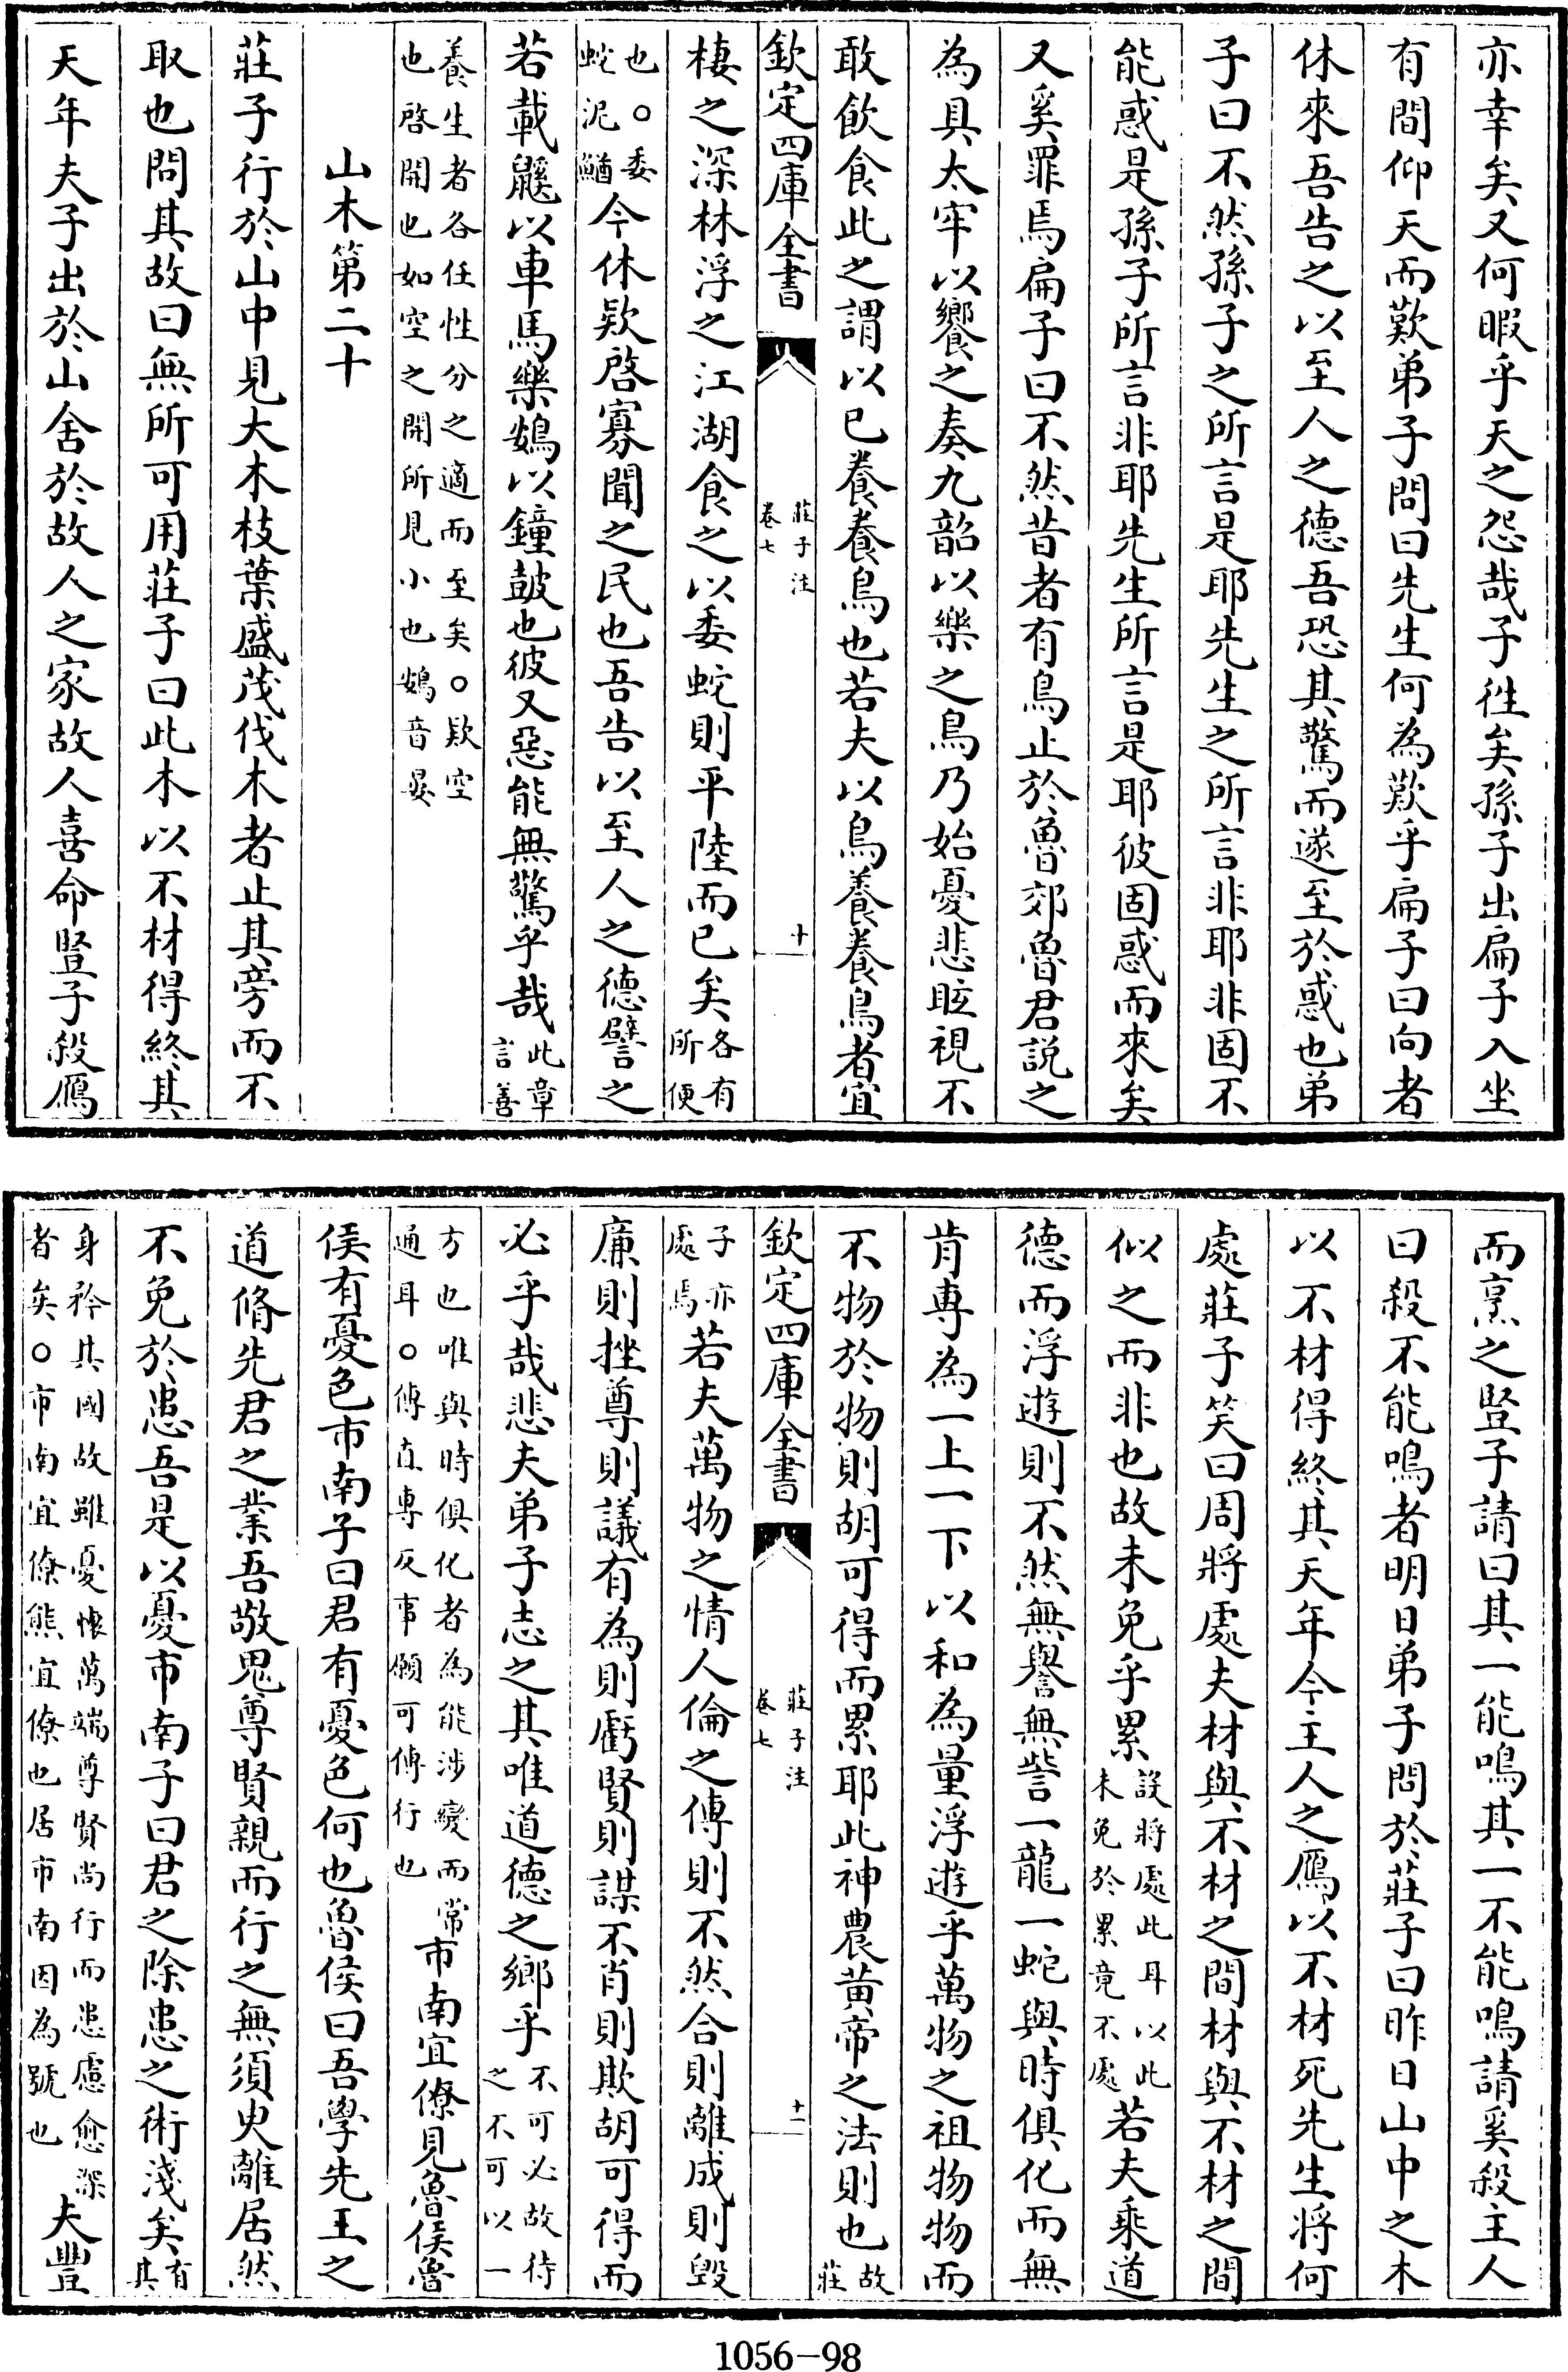 亦幸矣又何暇乎天之怨哉子徃矣孫子出扁子入坐
有間仰天而歎弟子問曰先生何為歎乎扁子曰向者
休來吾告之以至人之德吾恐其驚而遂至於惑也弟
子曰不然孫子之所言是耶先生之所言非耶非固不
能惑是孫子所言非耶先生所言是耶彼固惑而來矣
又奚罪焉扁子曰不然昔者有鳥止於魯郊魯君説之
為具太牢以饗之奏九韶以樂之鳥乃始憂悲眩視不
敢飲食此之謂以已養養鳥也若夫以鳥養養鳥者宜
欽定四庫全書
莊子注
卷七
十
棲之深林浮之江湖食之以委蛇則平陸而已矣各有
所便
也○委
蛇泥鰌今休欵啓寡聞之民也吾告以至人之德譬之
若載鼷以車馬樂鴳以鐘鼓也彼又惡能無驚乎哉此章
言善
養生者各任性分之適而至矣○欵空
也啓開也如空之開所見小也鴳音晏
山木第二十
莊子行於山中見大木枝葉盛茂伐木者止其旁而不
取也問其故曰無所可用莊子曰此木以不材得終其
天年夫子出於山舍於故人之家故人喜命豎子殺鴈
而烹之豎子請曰其一能鳴其一不能鳴請奚殺主人
曰殺不能鳴者明日弟子問於莊子曰昨日山中之木
以不材得終其天年今主人之鴈以不材死先生將何
處莊子笑曰周將處夫材與不材之間材與不材之間
似之而非也故未免乎累設將處此耳以此
未免於累竟不處若夫乘道
德而浮遊則不然無譽無訾一龍一蛇與時俱化而無
肯專為一上一下以和為量浮遊乎萬物之祖物物而
不物於物則胡可得而累耶此神農黄帝之法則也故
莊
欽定四庫全書
莊子注
卷七
十一
子亦
處焉若夫萬物之情人倫之傳則不然合則離成則毀
廉則挫尊則議有為則虧賢則謀不肖則欺胡可得而
必乎哉悲夫弟子志之其唯道德之鄉乎不可必故待
之不可以一
方也唯與時俱化者為能涉變而常
通耳○傳直專反事類可傳行也市南宜僚見魯侯魯
侯有憂色市南子曰君有憂色何也魯侯曰吾學先王之
道脩先君之業吾敬鬼尊賢親而行之無須臾離居然
不免於患吾是以憂市南子曰君之除患之術淺矣有
其
身矜其國故雖憂懷萬端尊賢尚行而患慮愈深
者矣○市南宜僚熊宜僚也居市南因為號也夫豐
1056-98